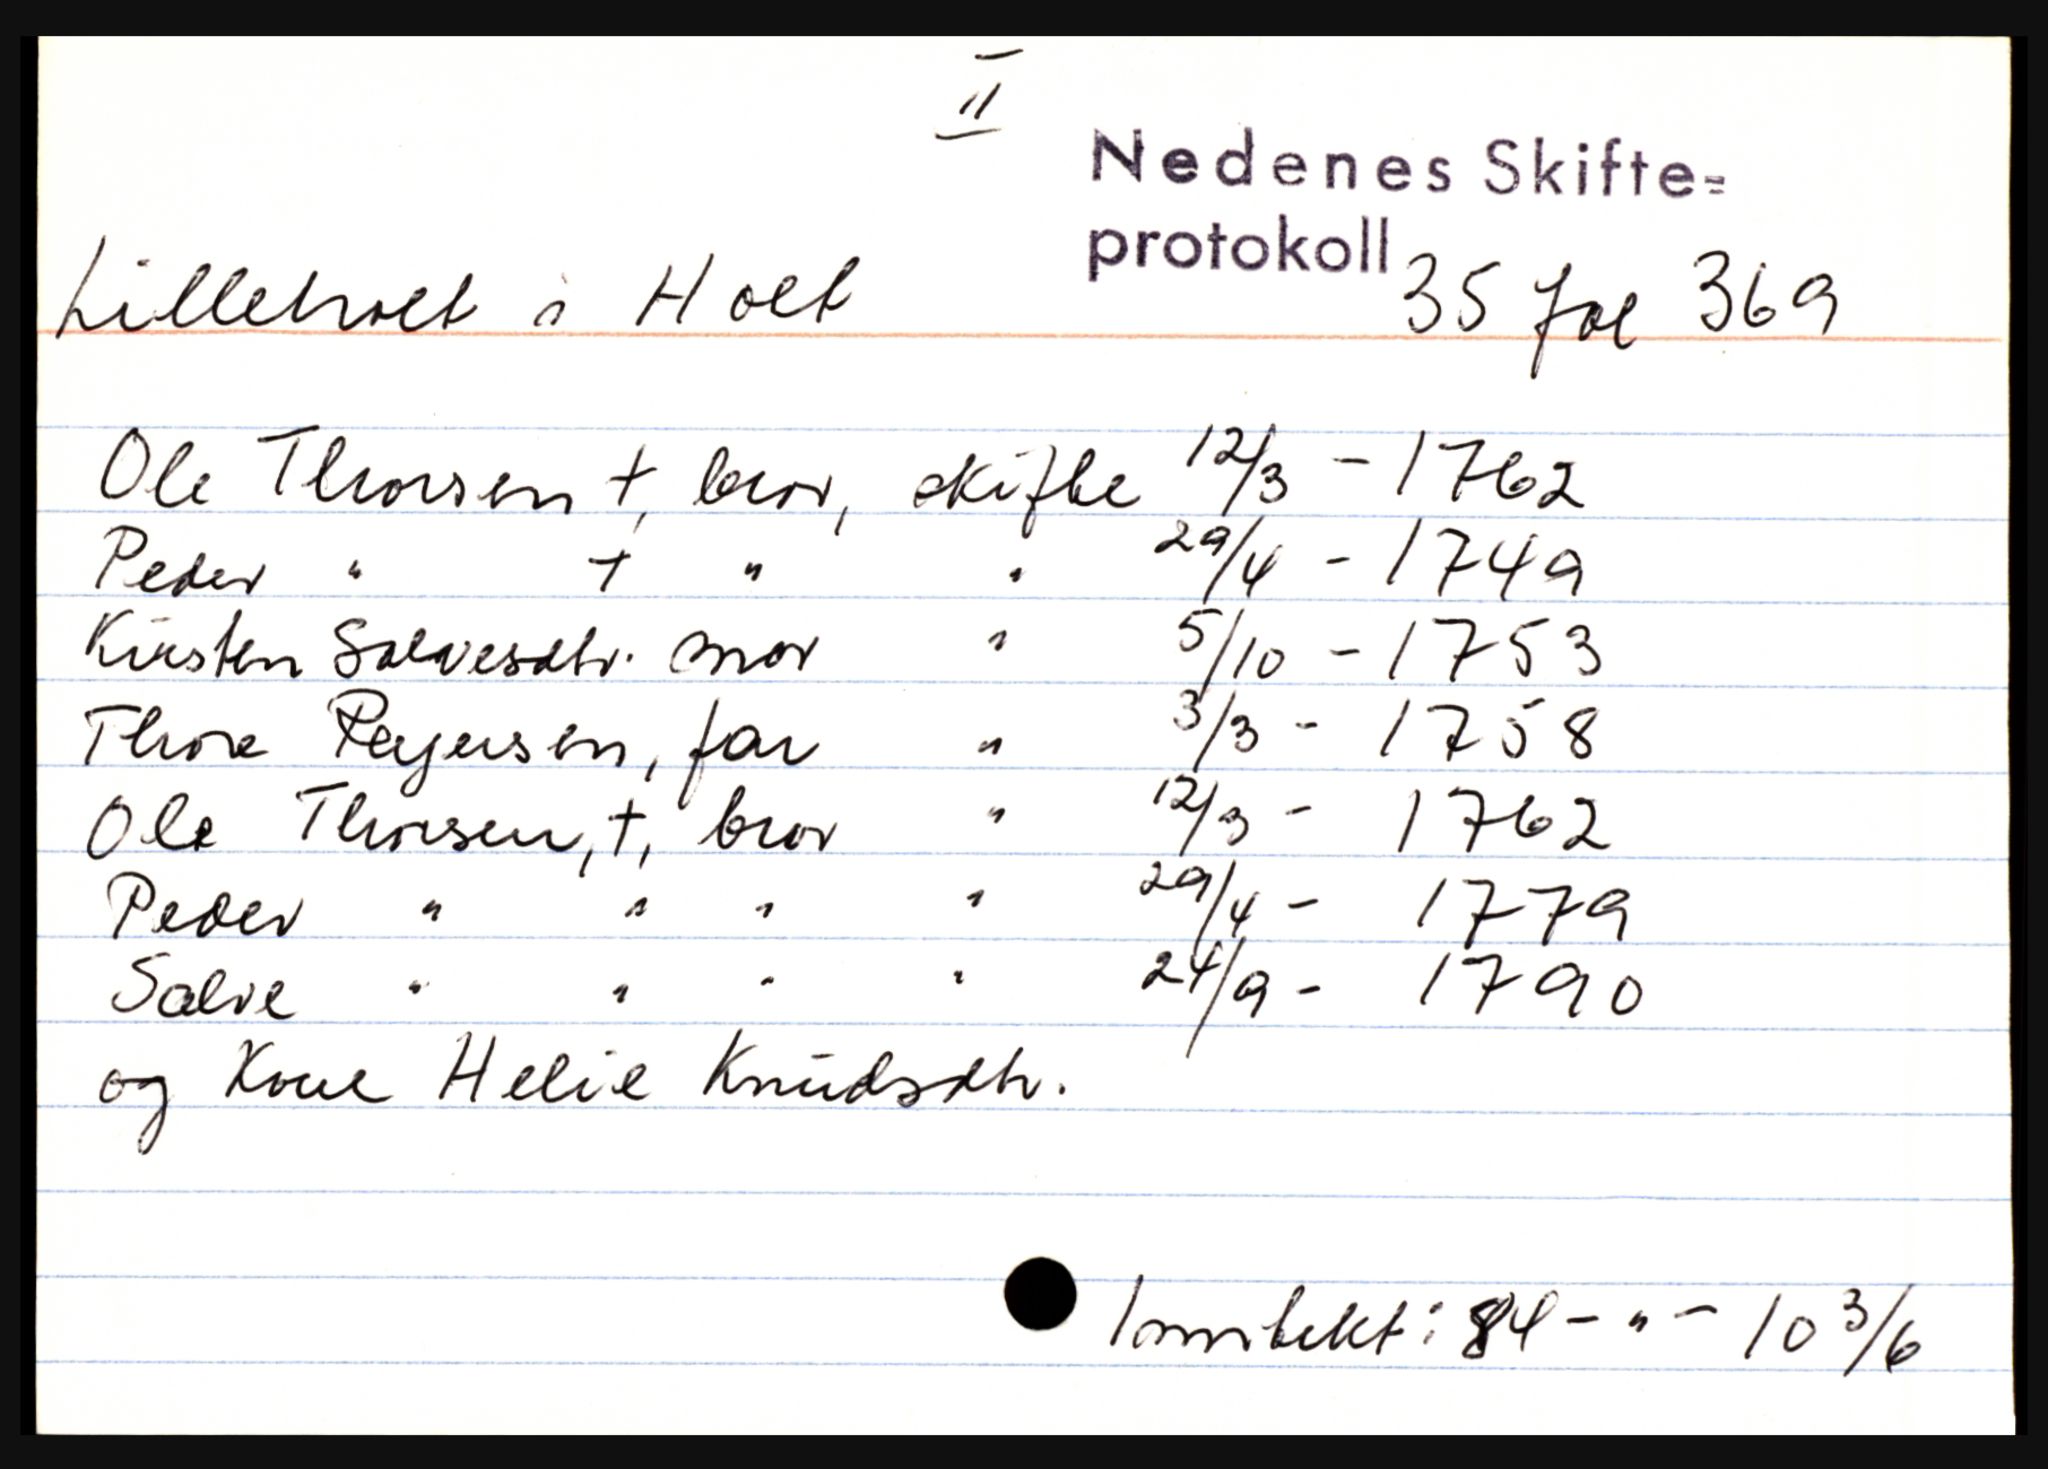 II
Nedenes Skifte=
protokoll 35 fol 369
Lilleholt i Holt
Ole Thorsen +, bror, skifte 12/3 - 1762
Peder " + " " 29/4 - 1749
Kirsten Salvesdtr. mor " 5/10 - 1753
Thore Reyersen, far " 3/3 - 1758
Ole Thorsen, +, bror " 12/3 - 1762
Peder " " " " 29/4 - 1779
Salve " " " " 24/9 - 1790
og Kone Helie Knudsdtr.
Inntekt: 84 - " - 10 3/6